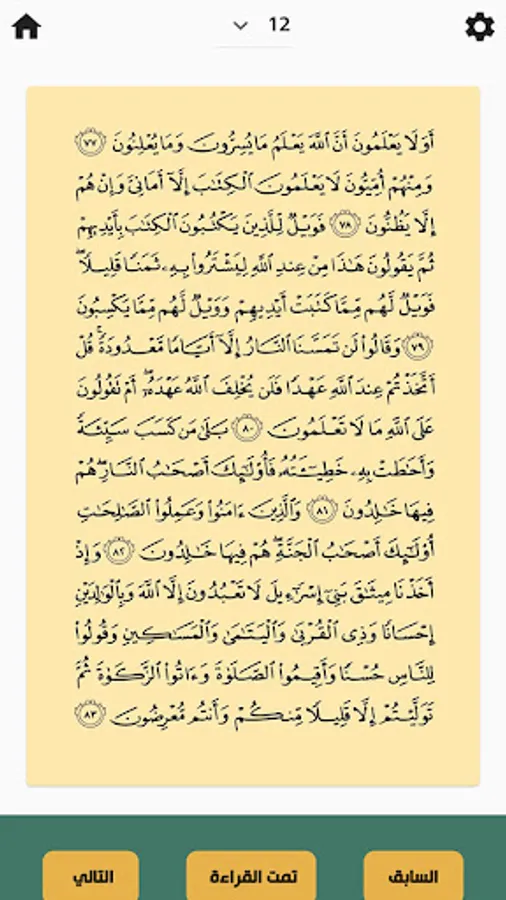 12
أَوَلَا يَعْلَمُونَ أَنَّ ٱللَّهَ يَعْلَمُ مَا يُسِرُّونَ وَمَا يُعْلِنُونَ ٧٧
وَمِنْهُمْ أُمِّيُّونَ لَا يَعْلَمُونَ ٱلْكِتَٰبَ إِلَّآ أَمَانِىَّ وَإِنْ هُمْ
إِلَّا يَظُنُّونَ ٧٨ فَوَيْلٌ لِّلَّذِينَ يَكْتُبُونَ ٱلْكِتَٰبَ بِأَيْدِيهِمْ
ثُمَّ يَقُولُونَ هَٰذَا مِنْ عِندِ ٱللَّهِ لِيَشْتَرُوا۟ بِهِۦ ثَمَنًا قَلِيلًا ۖ
فَوَيْلٌ لَّهُم مِّمَّا كَتَبَتْ أَيْدِيهِمْ وَوَيْلٌ لَّهُم مِّمَّا يَكْسِبُونَ
٧٩ وَقَالُوا۟ لَن تَمَسَّنَا ٱلنَّارُ إِلَّآ أَيَّامًا مَّعْدُودَةً ۚ قُلْ
أَتَّخَذْتُمْ عِندَ ٱللَّهِ عَهْدًا فَلَن يُخْلِفَ ٱللَّهُ عَهْدَهُۥٓ ۖ أَمْ تَقُولُونَ
عَلَى ٱللَّهِ مَا لَا تَعْلَمُونَ ٨٠ بَلَىٰ مَن كَسَبَ سَيِّئَةً
وَأَحَٰطَتْ بِهِۦ خَطِيٓـَٔتُهُۥ فَأُو۟لَٰٓئِكَ أَصْحَٰبُ ٱلنَّارِ ۖ هُمْ
فِيهَا خَٰلِدُونَ ٨١ وَٱلَّذِينَ ءَامَنُوا۟ وَعَمِلُوا۟ ٱلصَّٰلِحَٰتِ
أُو۟لَٰٓئِكَ أَصْحَٰبُ ٱلْجَنَّةِ ۖ هُمْ فِيهَا خَٰلِدُونَ ٨٢ وَإِذْ
أَخَذْنَا مِيثَٰقَ بَنِىٓ إِسْرَٰٓءِيلَ لَا تَعْبُدُونَ إِلَّا ٱللَّهَ وَبِٱلْوَٰلِدَيْنِ
إِحْسَانًا وَذِى ٱلْقُرْبَىٰ وَٱلْيَتَٰمَىٰ وَٱلْمَسَٰكِينِ وَقُولُوا۟
لِلنَّاسِ حُسْنًا وَأَقِيمُوا۟ ٱلصَّلَوٰةَ وَءَاتُوا۟ ٱلزَّكَوٰةَ ثُمَّ
تَوَلَّيْتُمْ إِلَّا قَلِيلًا مِّنكُمْ وَأَنتُم مُّعْرِضُونَ ٨٣
السابق تمت القراءة التالي